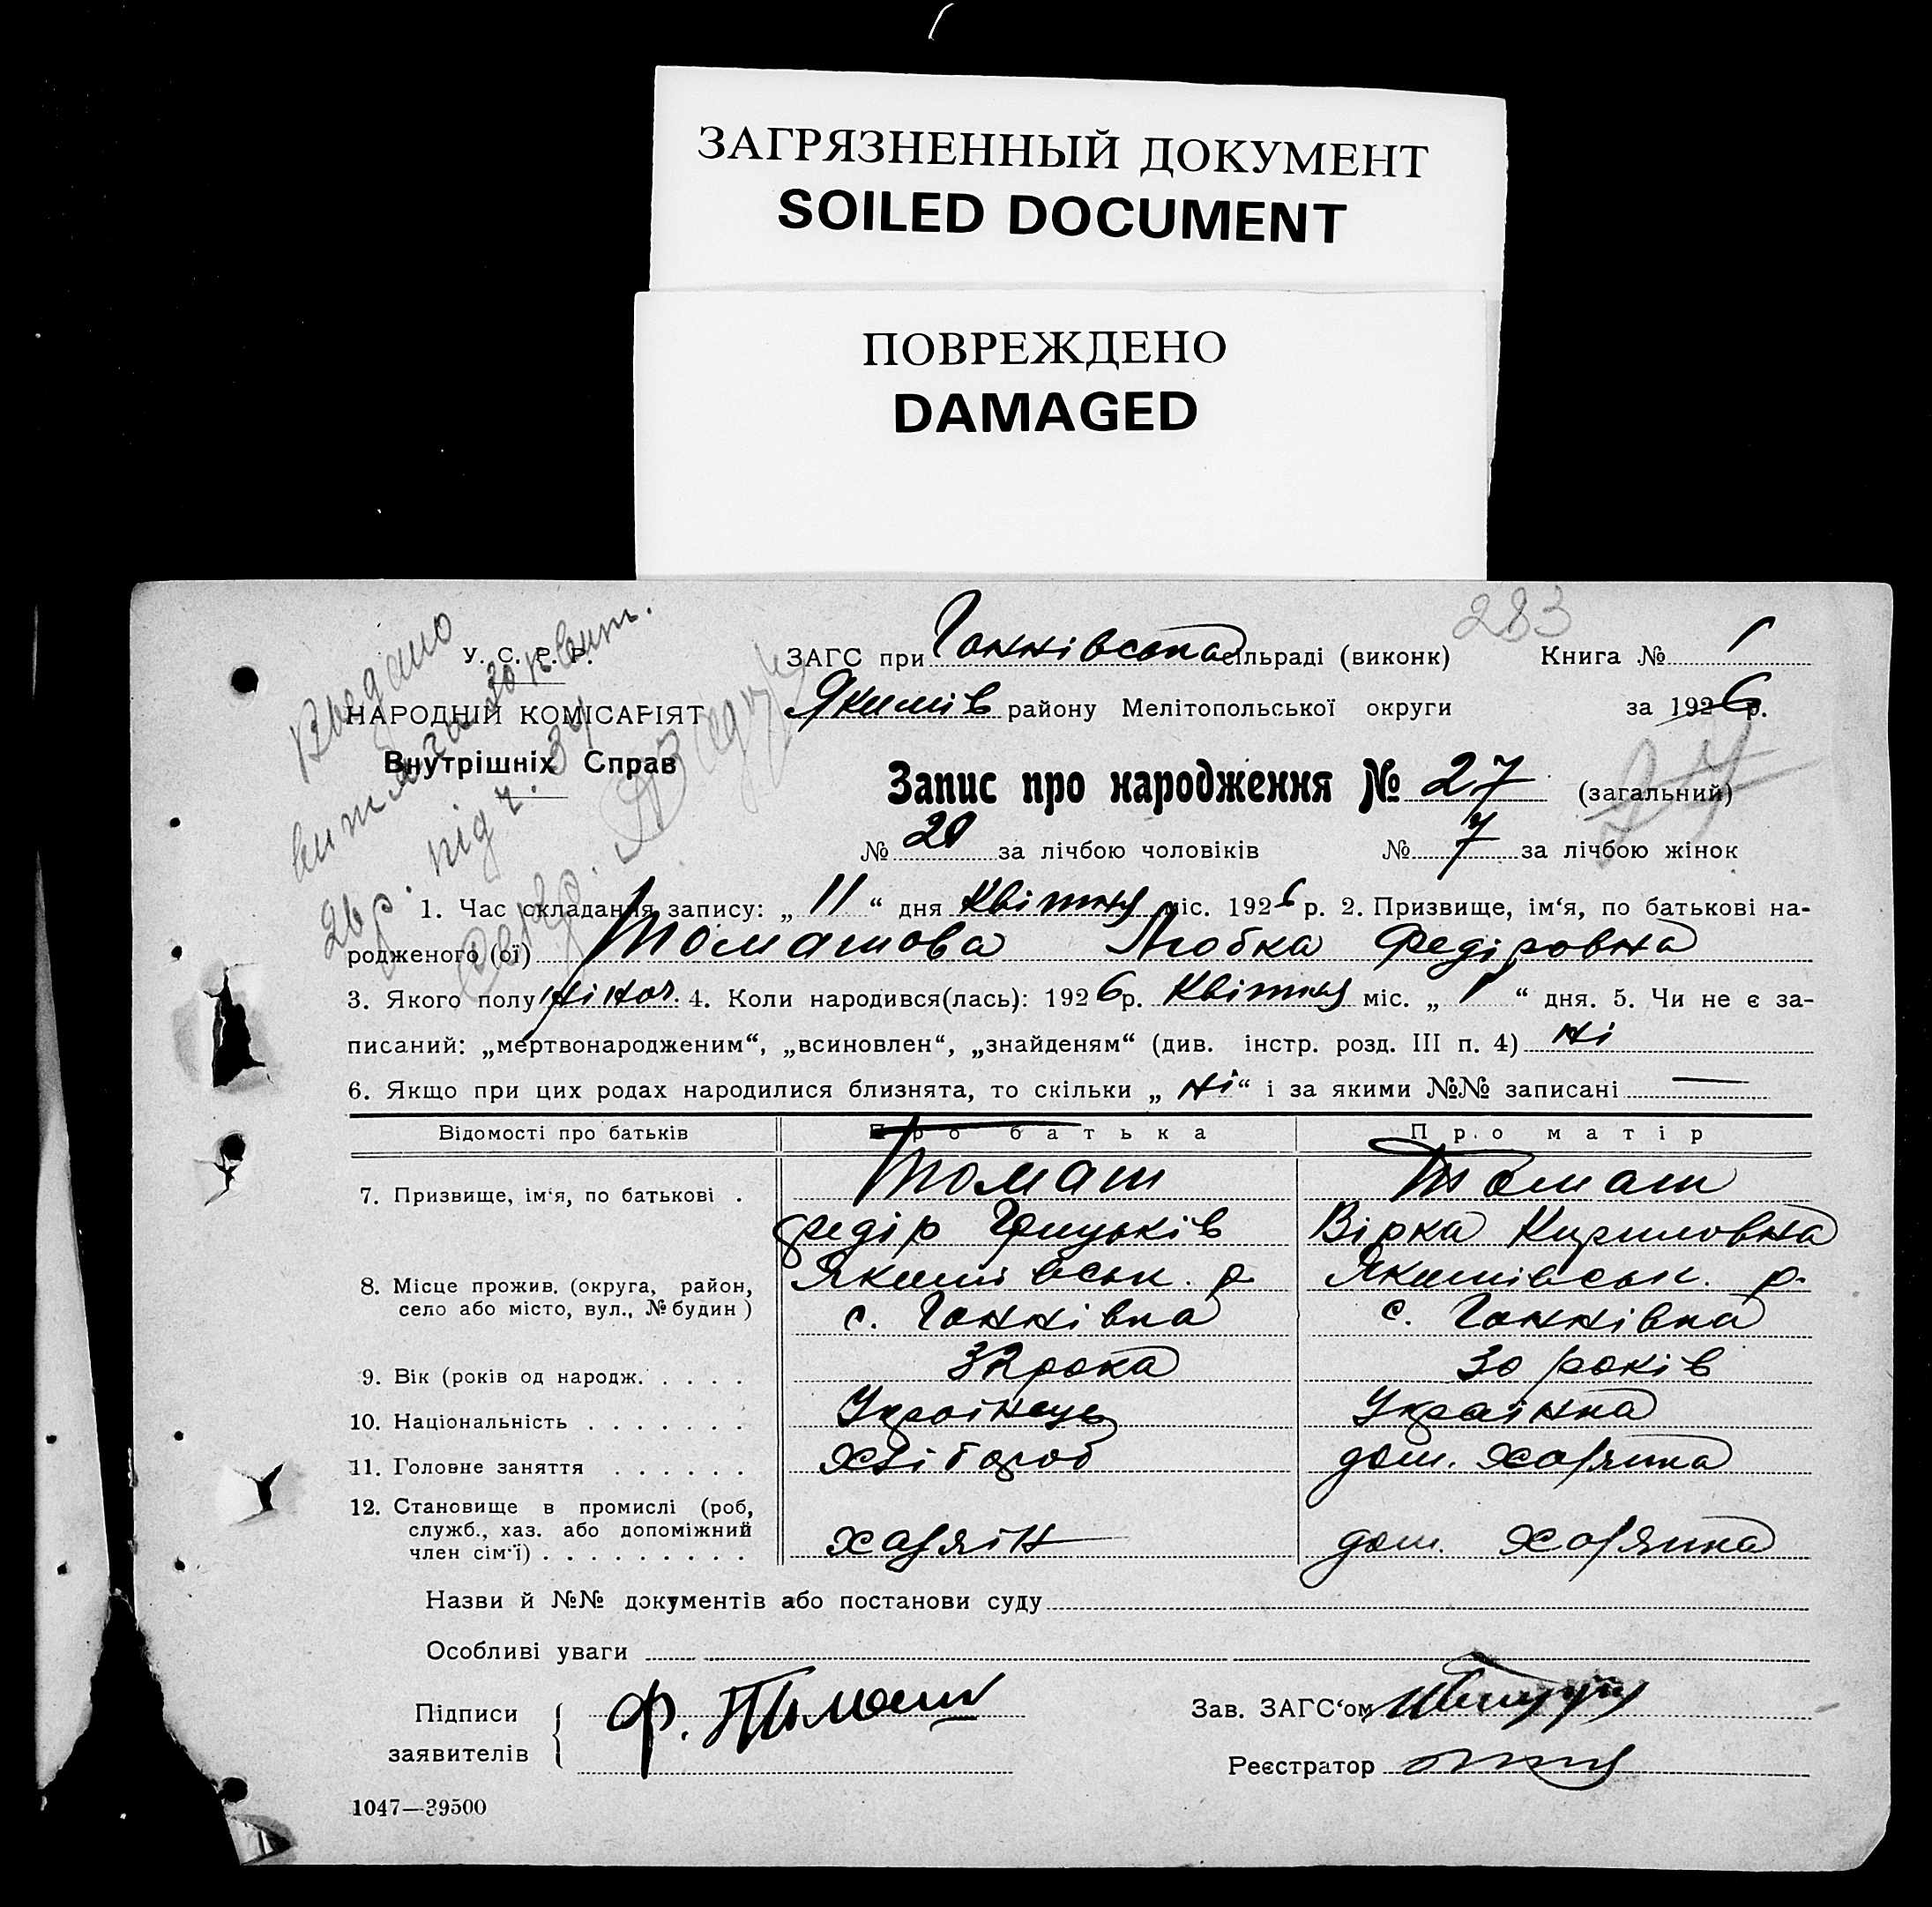 ЗАГРЯЗНЕННЫЙ ДОКУМЕНТ
SOILED DOCUMENT
ПОВРЕЖДЕНО
DAMAGED
283
У. С. Р. Р.
НАРОДНІЙ КОМІСАРІЯТ
Внутрішніх Справ
Видано
витяг за 30 квит.
26 р. під ч. 34
ЗАГС при Ганнівська сільраді (виконк) Книга № 1
Якимів району Мелітопольської округи за 1926 р.
Запис про народження № 27 (загальний)
27
№ 20 за лічбою чоловіків № 7 за лічбою жінок
1. Час складання запису: „ 11 “ дня Квітня міс. 1926 р. 2. Призвище, ім‘я, по батькові на-
родженого (ої) Томашова Любка Федіровна
3. Якого полу жіноч. 4. Коли народився(лась): 1926 р. Квітня міс. „ 1 “ дня. 5. Чи не є за-
писаний: „мертвонародженим“, „всиновлен“, „знайденям“ (див. інстр. розд. III п. 4) Ні
6. Якщо при цих родах народилися близнята, то скільки „ Ні “ і за якими №№ записані —
Відомості про батьків Про батька Про матір
7. Призвище, ім‘я, по батькові . Томаш Томаш
Федір Грицьків Вірка Кириловна
8. Місце прожив. (округа, район, Якимівськ. р. Якимівськ. р.
село або місто, вул., № будин) с. Ганнівка с. Ганнівка
9. Вік (років од народж. . . . . 32 рока 30 років
10. Національність . . . . . . . Українець Українка
11. Головне заняття . . . . . . хлібороб дом. хазяйка
12. Становище в промислі (роб,
служб., хаз. або допоміжний
член сім‘ї) . . . . . . . . . хазяїн дом. хазяйка
Назви й №№ документів або постанови суду
Особливі уваги
Підписи
заявителів
Ф. Томаш
Зав. ЗАГС‘ом
Реєстратор
1047—39500